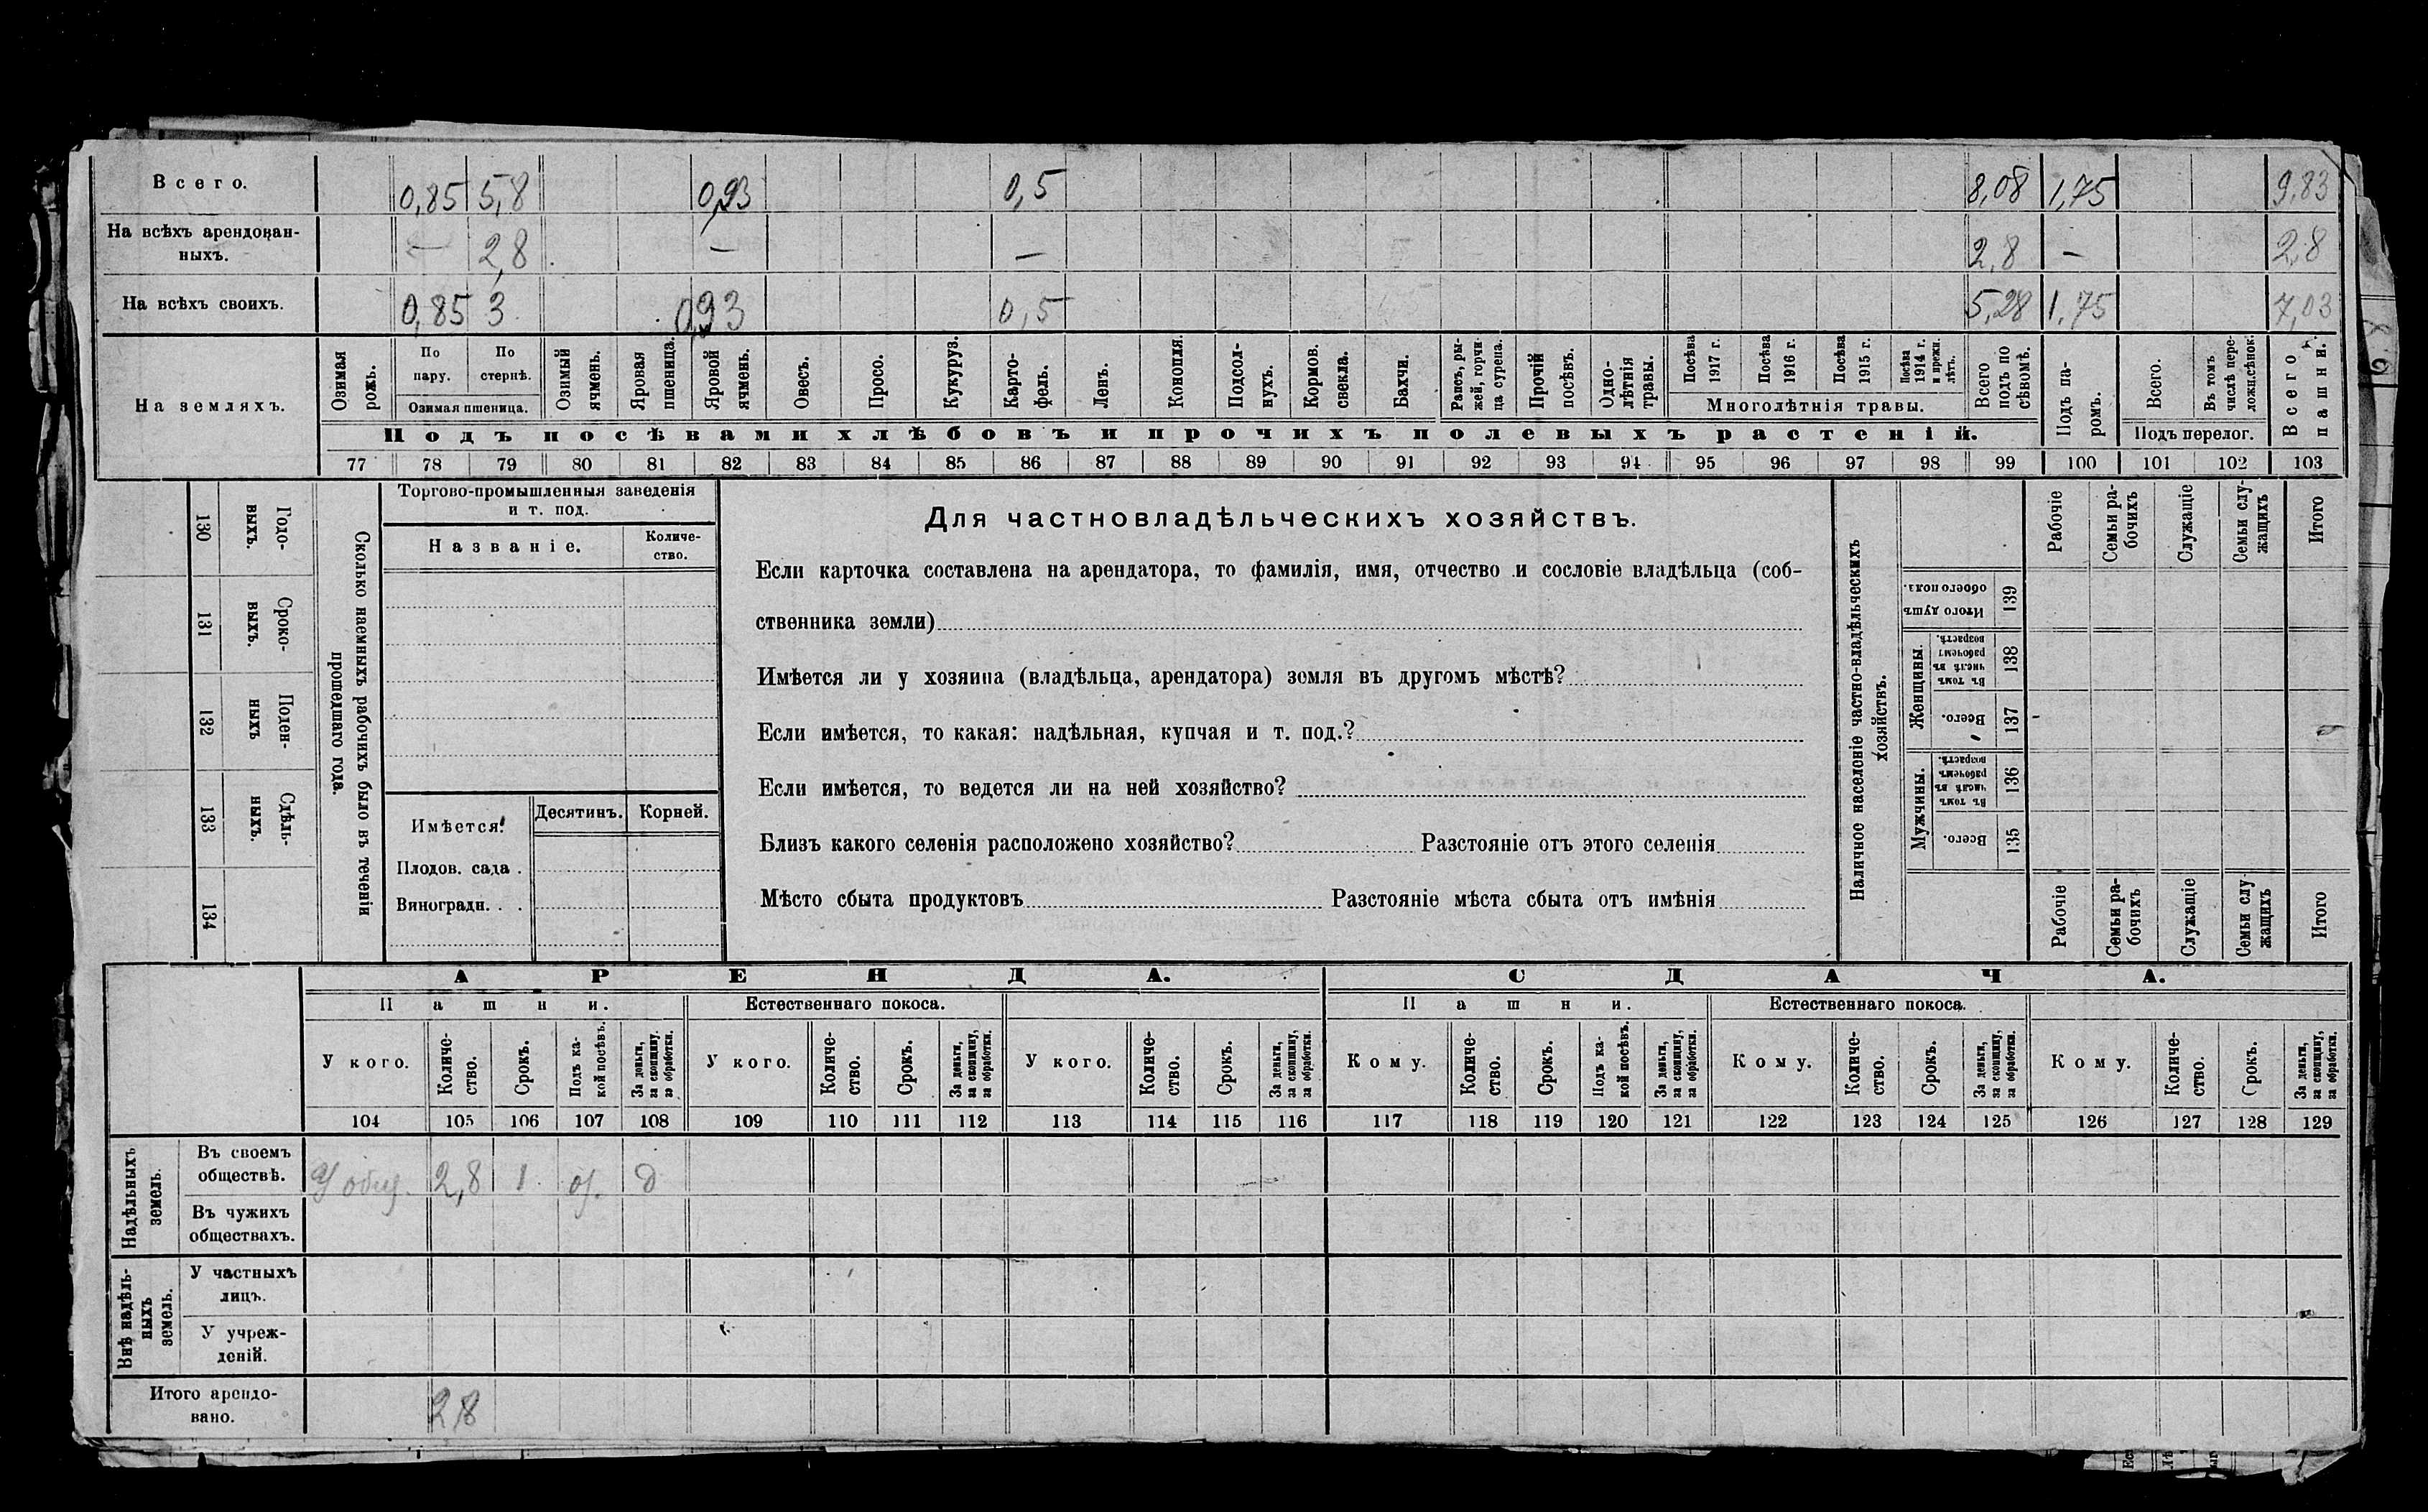 Всего. 0,85 5,8 0,93 0,5 8,08 1,75 9,83
На всѣхъ арендован-
ныхъ. — 2,8 — — 2,8 — 2,8
На всѣхъ своихъ. 0,85 3 0,93 0,5 5,28 1,75 7,03
На земляхъ.
Озимая рожь.
По пару.
По стернѣ.
Озимая пшеница.
Озимый ячмень.
Яровая пшеница.
Яровой ячмень.
Овесъ.
Просо.
Кукуруз.
Карто-
фель.
Ленъ.
Конопля.
Подсол-
нухъ.
Кормов. свекла.
Бахчи.
Рапсъ, ры-
жей, горчи-
ца сурепа.
Прочій посѣвъ.
Одно-
лѣтнія травы.
Посѣва 1917 г.
Посѣва 1916 г.
Посѣва 1915 г.
Посѣва 1914 г. и прежн. лѣтъ.
Многолѣтнія травы.
Всего подъ по
сѣвомъ.
Подъ па-
ромъ.
Всего.
Въ томъ числѣ пере-
ложн.сѣнок.
Подъ перелог.
Всего пашни.
Подъ посѣвами хлѣбовъ и прочихъ полевыхъ растеній.
77 78 79 80 81 82 83 84 85 86 87 88 89 90 91 92 93 94 95 96 97 98 99 100 101 102 103
130 Годо-
выхъ.
131 Сроко-
выхъ.
132 Поден-
ныхъ
133 Сдѣль-
ныхъ.
134
Сколько наемныхъ рабочихъ было въ теченіи
прошедшаго года.
Торгово-промышленныя заведенія
и т. под.
Названіе. Количе-
ство.
Имѣется: Десятинъ. Корней.
Плодов. сада .
Виноградн. . .
Для частновладѣльческихъ хозяйствъ.
Если карточка составлена на арендатора, то фамилія, имя, отчество и сословіе владѣльца (соб-
ственника земли)
Имѣется ли у хозяина (владѣльца, арендатора) земля въ другомъ мѣстѣ?
Если имѣется, то какая: надѣльная, купчая и т. под.?
Если имѣется, то ведется ли на ней хозяйство?
Близъ какого селенія расположено хозяйство? Разстояніе отъ этого селенія
Мѣсто сбыта продуктовъ Разстояніе мѣста сбыта отъ имѣнія
Наличное населеніе частно-владѣльческихъ
хозяйствъ.
Рабочіе
Семьи ра-
бочихъ
Служащіе
Семьи слу-
жащихъ
Итого
Итого душъ обоего пола. 139
Женщины.
Въ томъ числѣ въ рабочемъ возрастѣ. 138
Всего. 137
Мужчины.
Въ томъ числѣ въ рабочемъ возрастѣ. 136
Всего. 135
Рабочіе
Семьи ра-
бочихъ
Служащіе
Семьи слу
жащихъ
Итого
АРЕНДА. СДАЧА.
Пашни. Естественнаго покоса. Пашни. Естественнаго покоса.
У кого.
Количе-
ство.
Срокъ.
Подъ ка-
кой посѣвъ.
За деньги, за скопщину, за обработки.
У кого.
Количе-
ство.
Срокъ.
За деньги, за скопщину, за обработки.
У кого.
Количе-
ство.
Срокъ.
За деньги, за скопщину, за обработки.
Кому.
Количе-
ство.
Срокъ.
Подъ ка-
кой посѣвъ.
За деньги, за скопщину, за обработки.
Кому.
Количе-
ство.
Срокъ.
За деньги, за скопщину, за обработки.
Кому.
Количе-
ство.
Срокъ.
За деньги, за скопщину, за обработки.
104 105 106 107 108 109 110 111 112 113 114 115 116 117 118 119 120 121 122 123 124 125 126 127 128 129
Надѣльныхъ земель.
Въ своемъ
обществѣ. У общ. 2,8 1 оз. д
Въ чужихъ
обществахъ.
Внѣ надѣль-
ныхъ земель.
У частныхъ
лицъ.
У учреж-
деній.
Итого арендо-
вано. 2,8